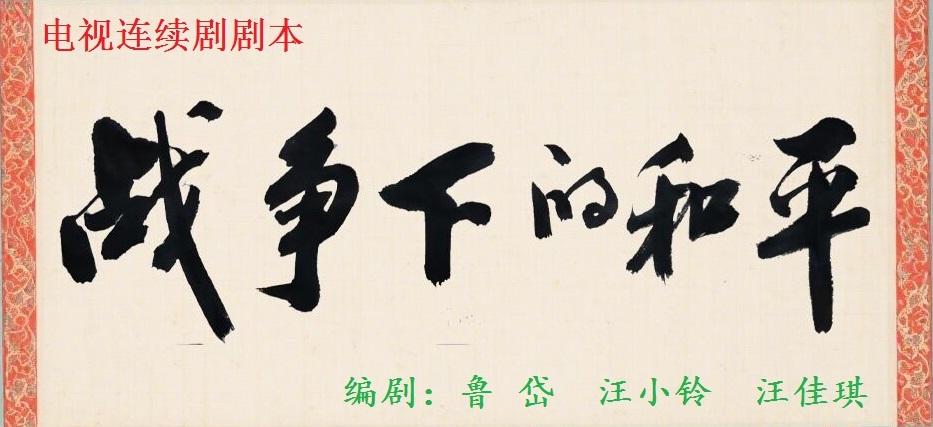 电视连续剧剧本
战争下的和平
编剧：鲁 岱 汪小铃 汪佳琪